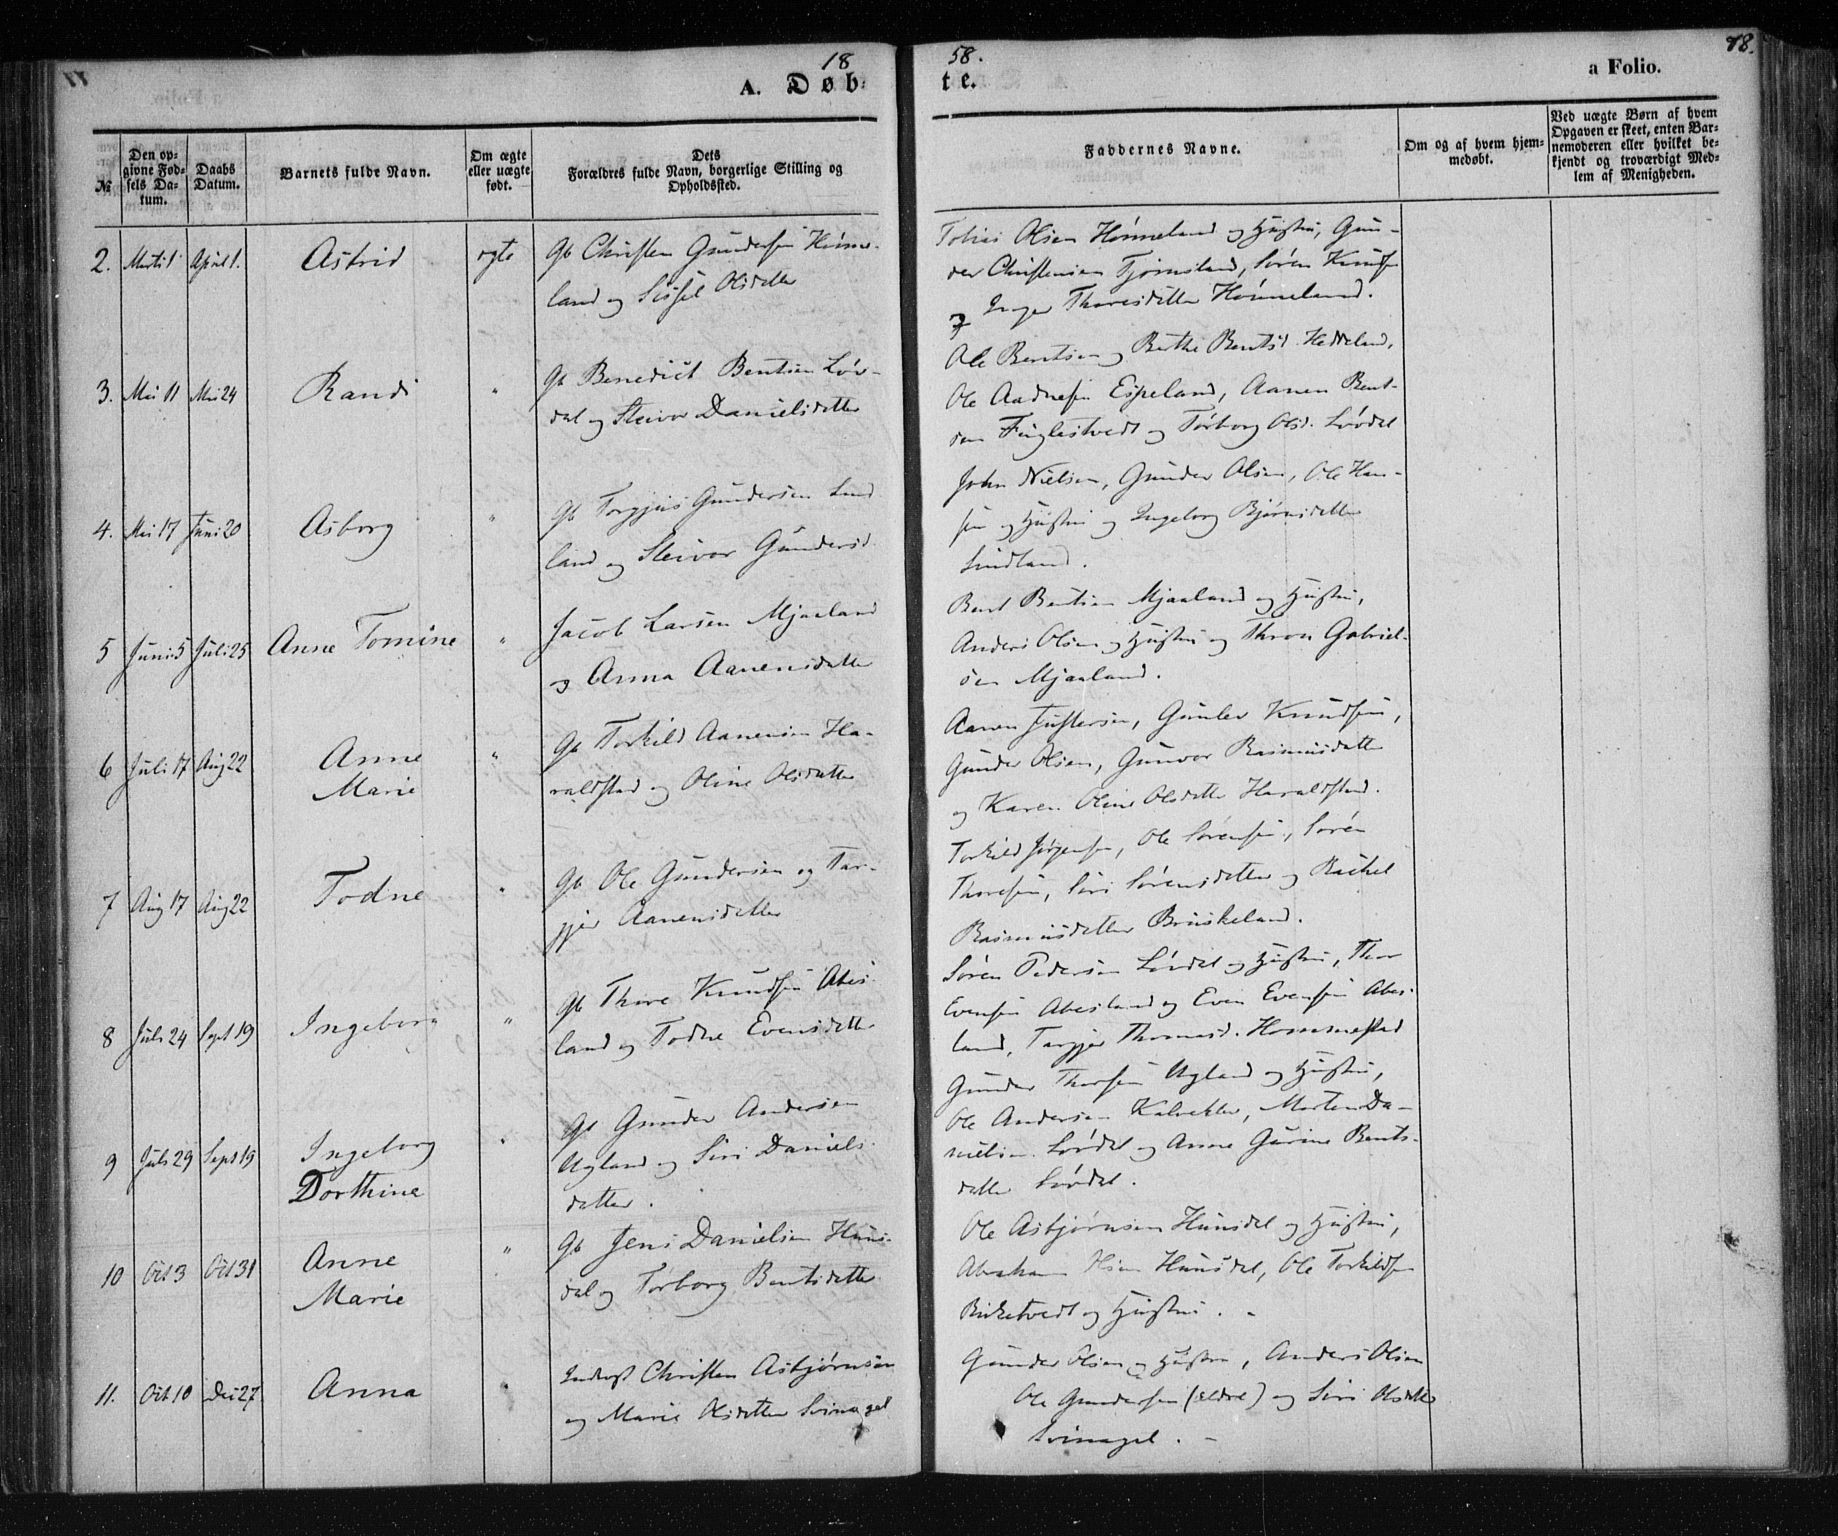 18 58. 78.
A. Døb- te. a Folio.
№ Den op-givne Fød-sels Da-tum. Daabs Datum. Barnets fulde Navn. Om ægte eller uægte født. Dets Forældres fulde Navn, borgerlige Stilling og Opholdssted.
Faddernes Navne. Om og af hvem hjem-medøbt. Ved uægte Børn af hvem Opgaven er skeet, enten Bar-nemoderen eller hvilket be-kjendt og troværdigt Med-lem af Menigheden.
2. Marts 1 April 1. Astrid ægte Gb Christen Gundersen Hønne-
land og Sissel Olsdatter
Tobias Olsen Hønneland og Hustru, Gun-
der Christensen Tjomsland, Søren Knudsen
og Inger Tharesdatter Hønneland.
3. Mai 11 Mai 24 Randi " Gb Benedict Bentsen Løv-
dal og Steivor Danielsdatter
Ole Bentsen og Berthe Bentsd. Heddeland,
Ole Aadnesen Espeland, Aanen Bent-
sen Fuglestvedt og Tørborg Olsd. Løvdal
4. Mai 17 Juni 20 Asborg " Gb Torgjuis Gundersen Lind
land og Steivor Gundersd.
John Nielsen, Gunder Olsen, Ole Han-
sen og Hustru og Ingeborg Bjørnsdatter
Lindland.
5 Juni 5 Juli 25 Anne Tomine " Jacob Larsen Mjaaland
og Anna Aanensdatter
Bent Bentsen Mjaaland og Hustru,
Anders Olsen og Hustru og Thron Gabriel-
sen Mjaaland.
6 Juli 17 Aug 22 Anne
Marie " Gb Torkild Aanensen Ha-
raldstad og Oline Olsdatter
Aanen Justersen, Gunlev Knudsen,
Gunder Olsen, Gunvor Rasmusdatter
og Karen Oline Olsdatter Haraldstad.
7 Aug 17 Aug 22 Todne " Gb Ole Gundersen og Tar-
gjer Aanensdatter
Torkild Jørgensen, Ole Sørensen, Søren
Thoresen, Siri Sørensdatter og Rachel
Rasmusdatter Bruskeland.
8 Juli 24 Sept 19 Ingeborg " Gb Thore Knudsen Abes-
land og Todne Evensdatter
Søren Pedersen Løvdal og Hustru, Thor
Evensen Abesland og Even Evensen Abes-
land, Targjer Thomasd. Hommestad
9 Juli 29 Sept 19 Ingeborg
Dorthine " Gb Gunder Andersen
Ugland og Siri Daniels-
datter.
Gunder Thorsen Ugland og Hustru,
Ole Andersen Kalvehler, Morten Da-
nielsen Løvdal og Anne Gurine Bents-
datter Løvdal.
10 Oct 3 Oct 31 Anne
Marie " Gb Jens Danielsen Huns-
dal og Tørborg Bentsdatter
Ole Asbjørnsen Hunsdal og Hustru,
Abraham Olsen Hunsdal, Ole Torkildsen
Birketvedt og Hustru. -
11. Oct 10 Dec 27 Anna " Inderst Christen Asbjørnsen
og Marie Olsdatter Svinagel
Gunder Olsen og Hustru, Anders Olsen
Ole Gundersen (ældre) og Siri Olsdatter
Svinagel. -